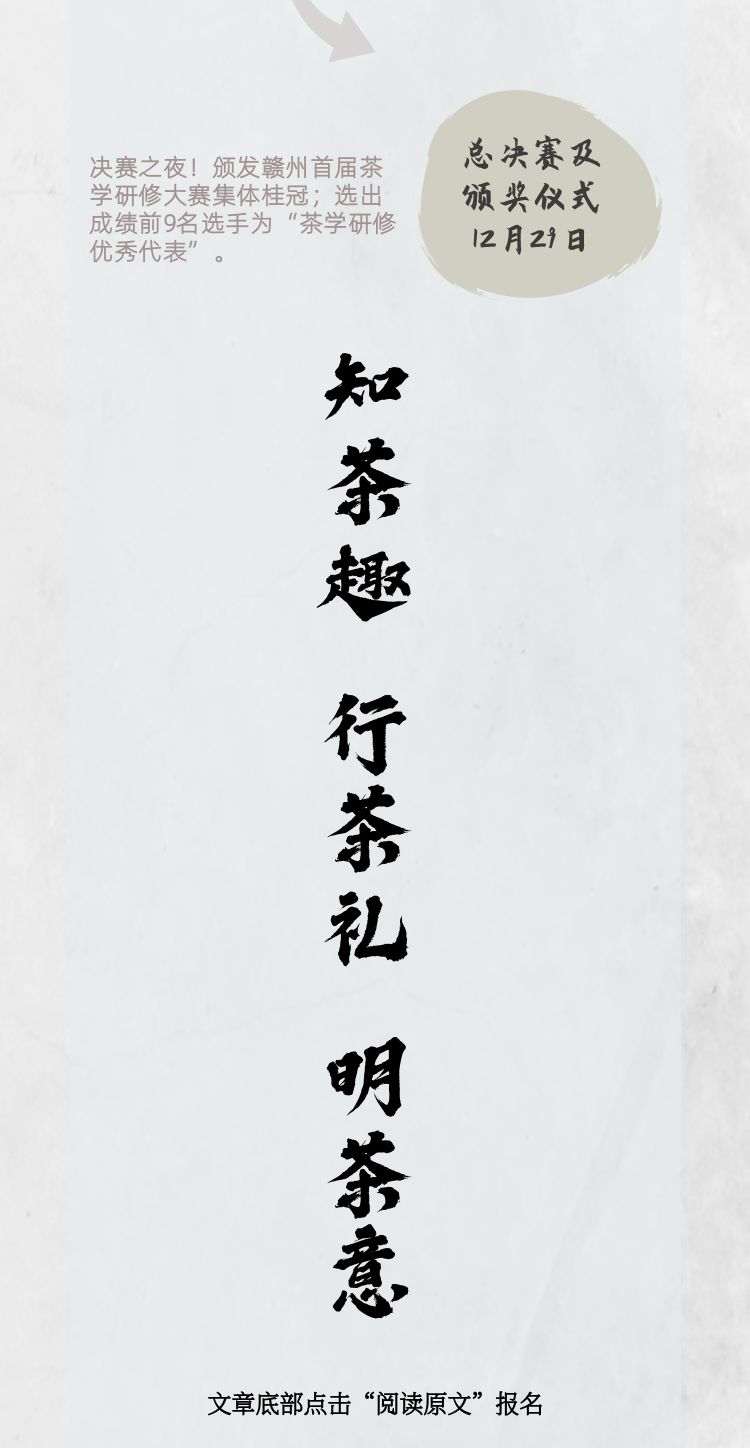 决赛之夜！颁发赣州首届茶
学研修大赛集体桂冠；选出
成绩前9名选手为“茶学研修
优秀代表”。
总决赛及
颁奖仪式
12月29日
知茶趣
行茶礼
明茶意
文章底部点击“阅读原文”报名